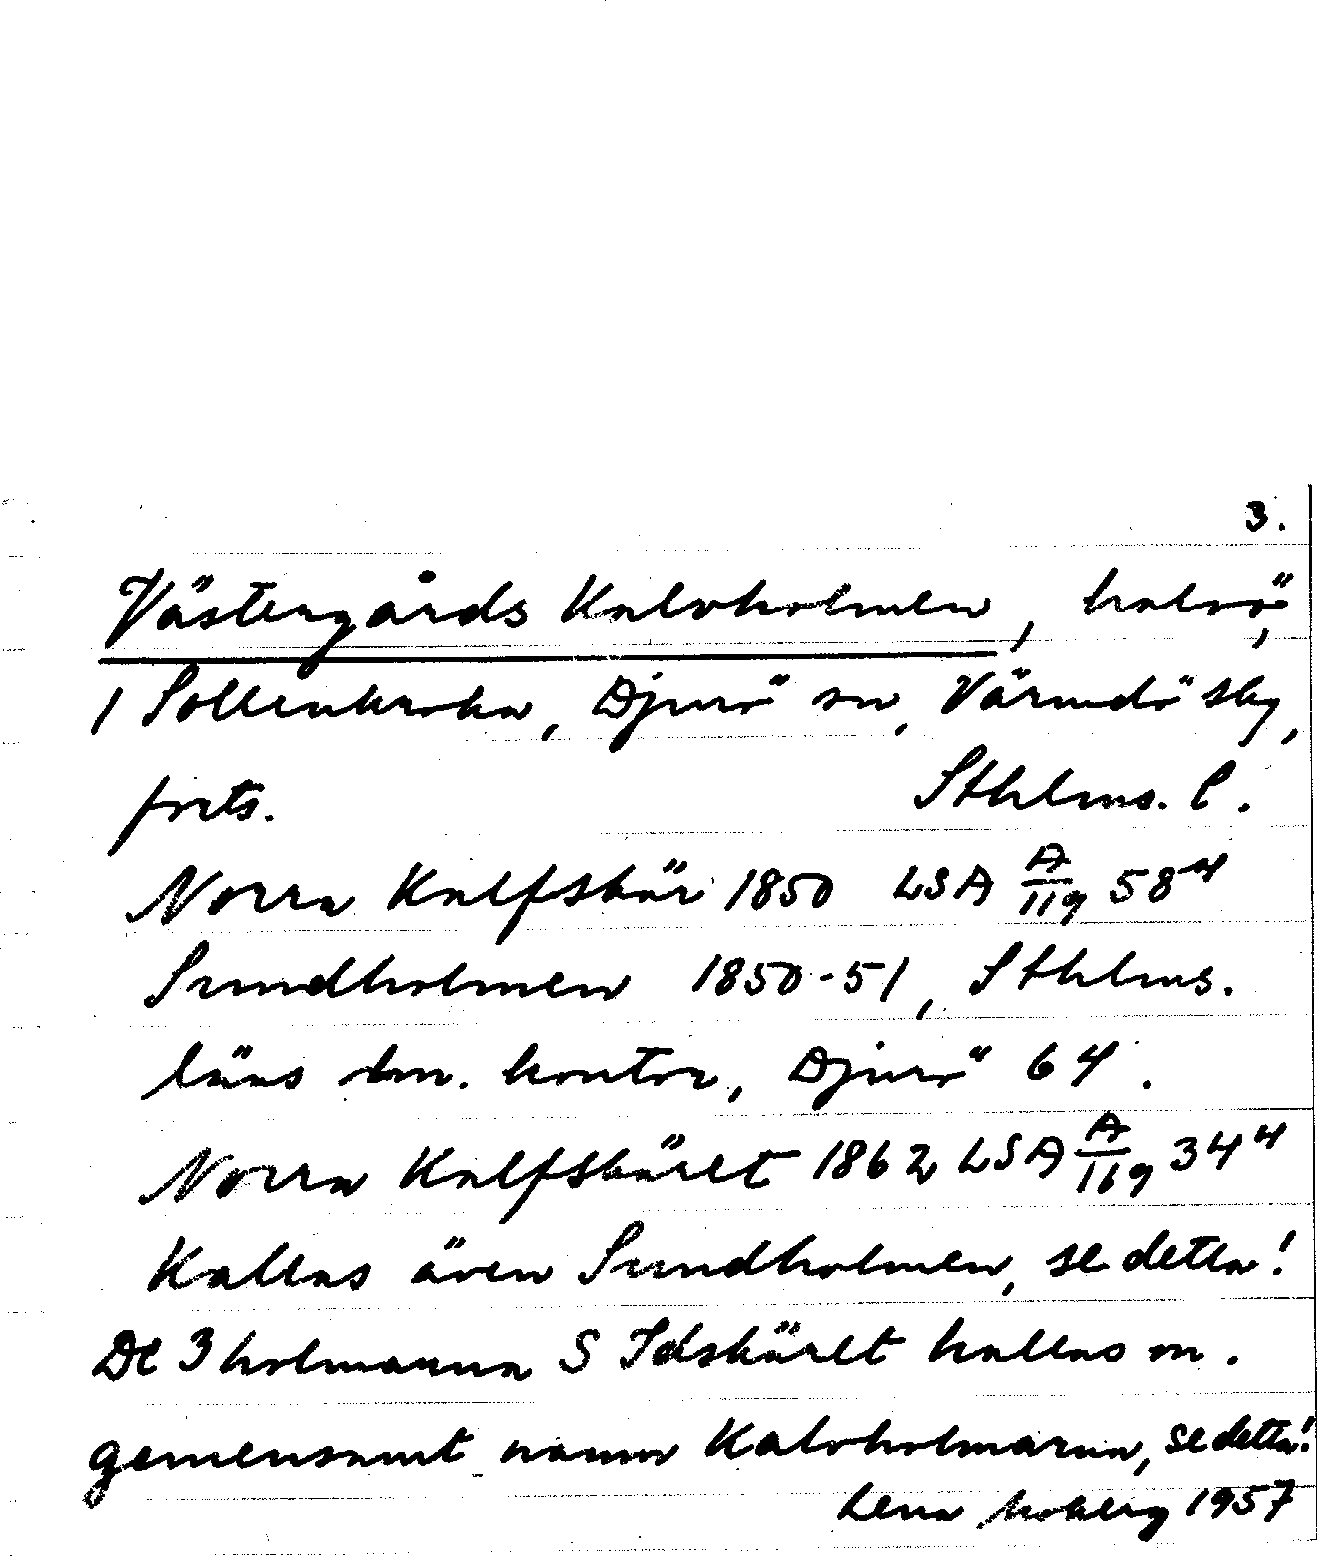 3.
Västergårds Kalvholmen, halvö,
/ Sollenkroka, Djurö sn, Värmdö skg,
forts. Sthlms. l.
Norra Kalfskär 1850 LSA A/119 58⁴
Sundholmen 1850-51, Sthlms.
läns dm. kontor, Djurö 64.
Norra Kalfskäret 1862 LSA A/119 34⁴
Kallas även Sundholmen, se detta!
De 3 holmarna S Idskäret kallas m.
gemensamt namn Kalvholmarna, se detta!
Lena Moberg 1957